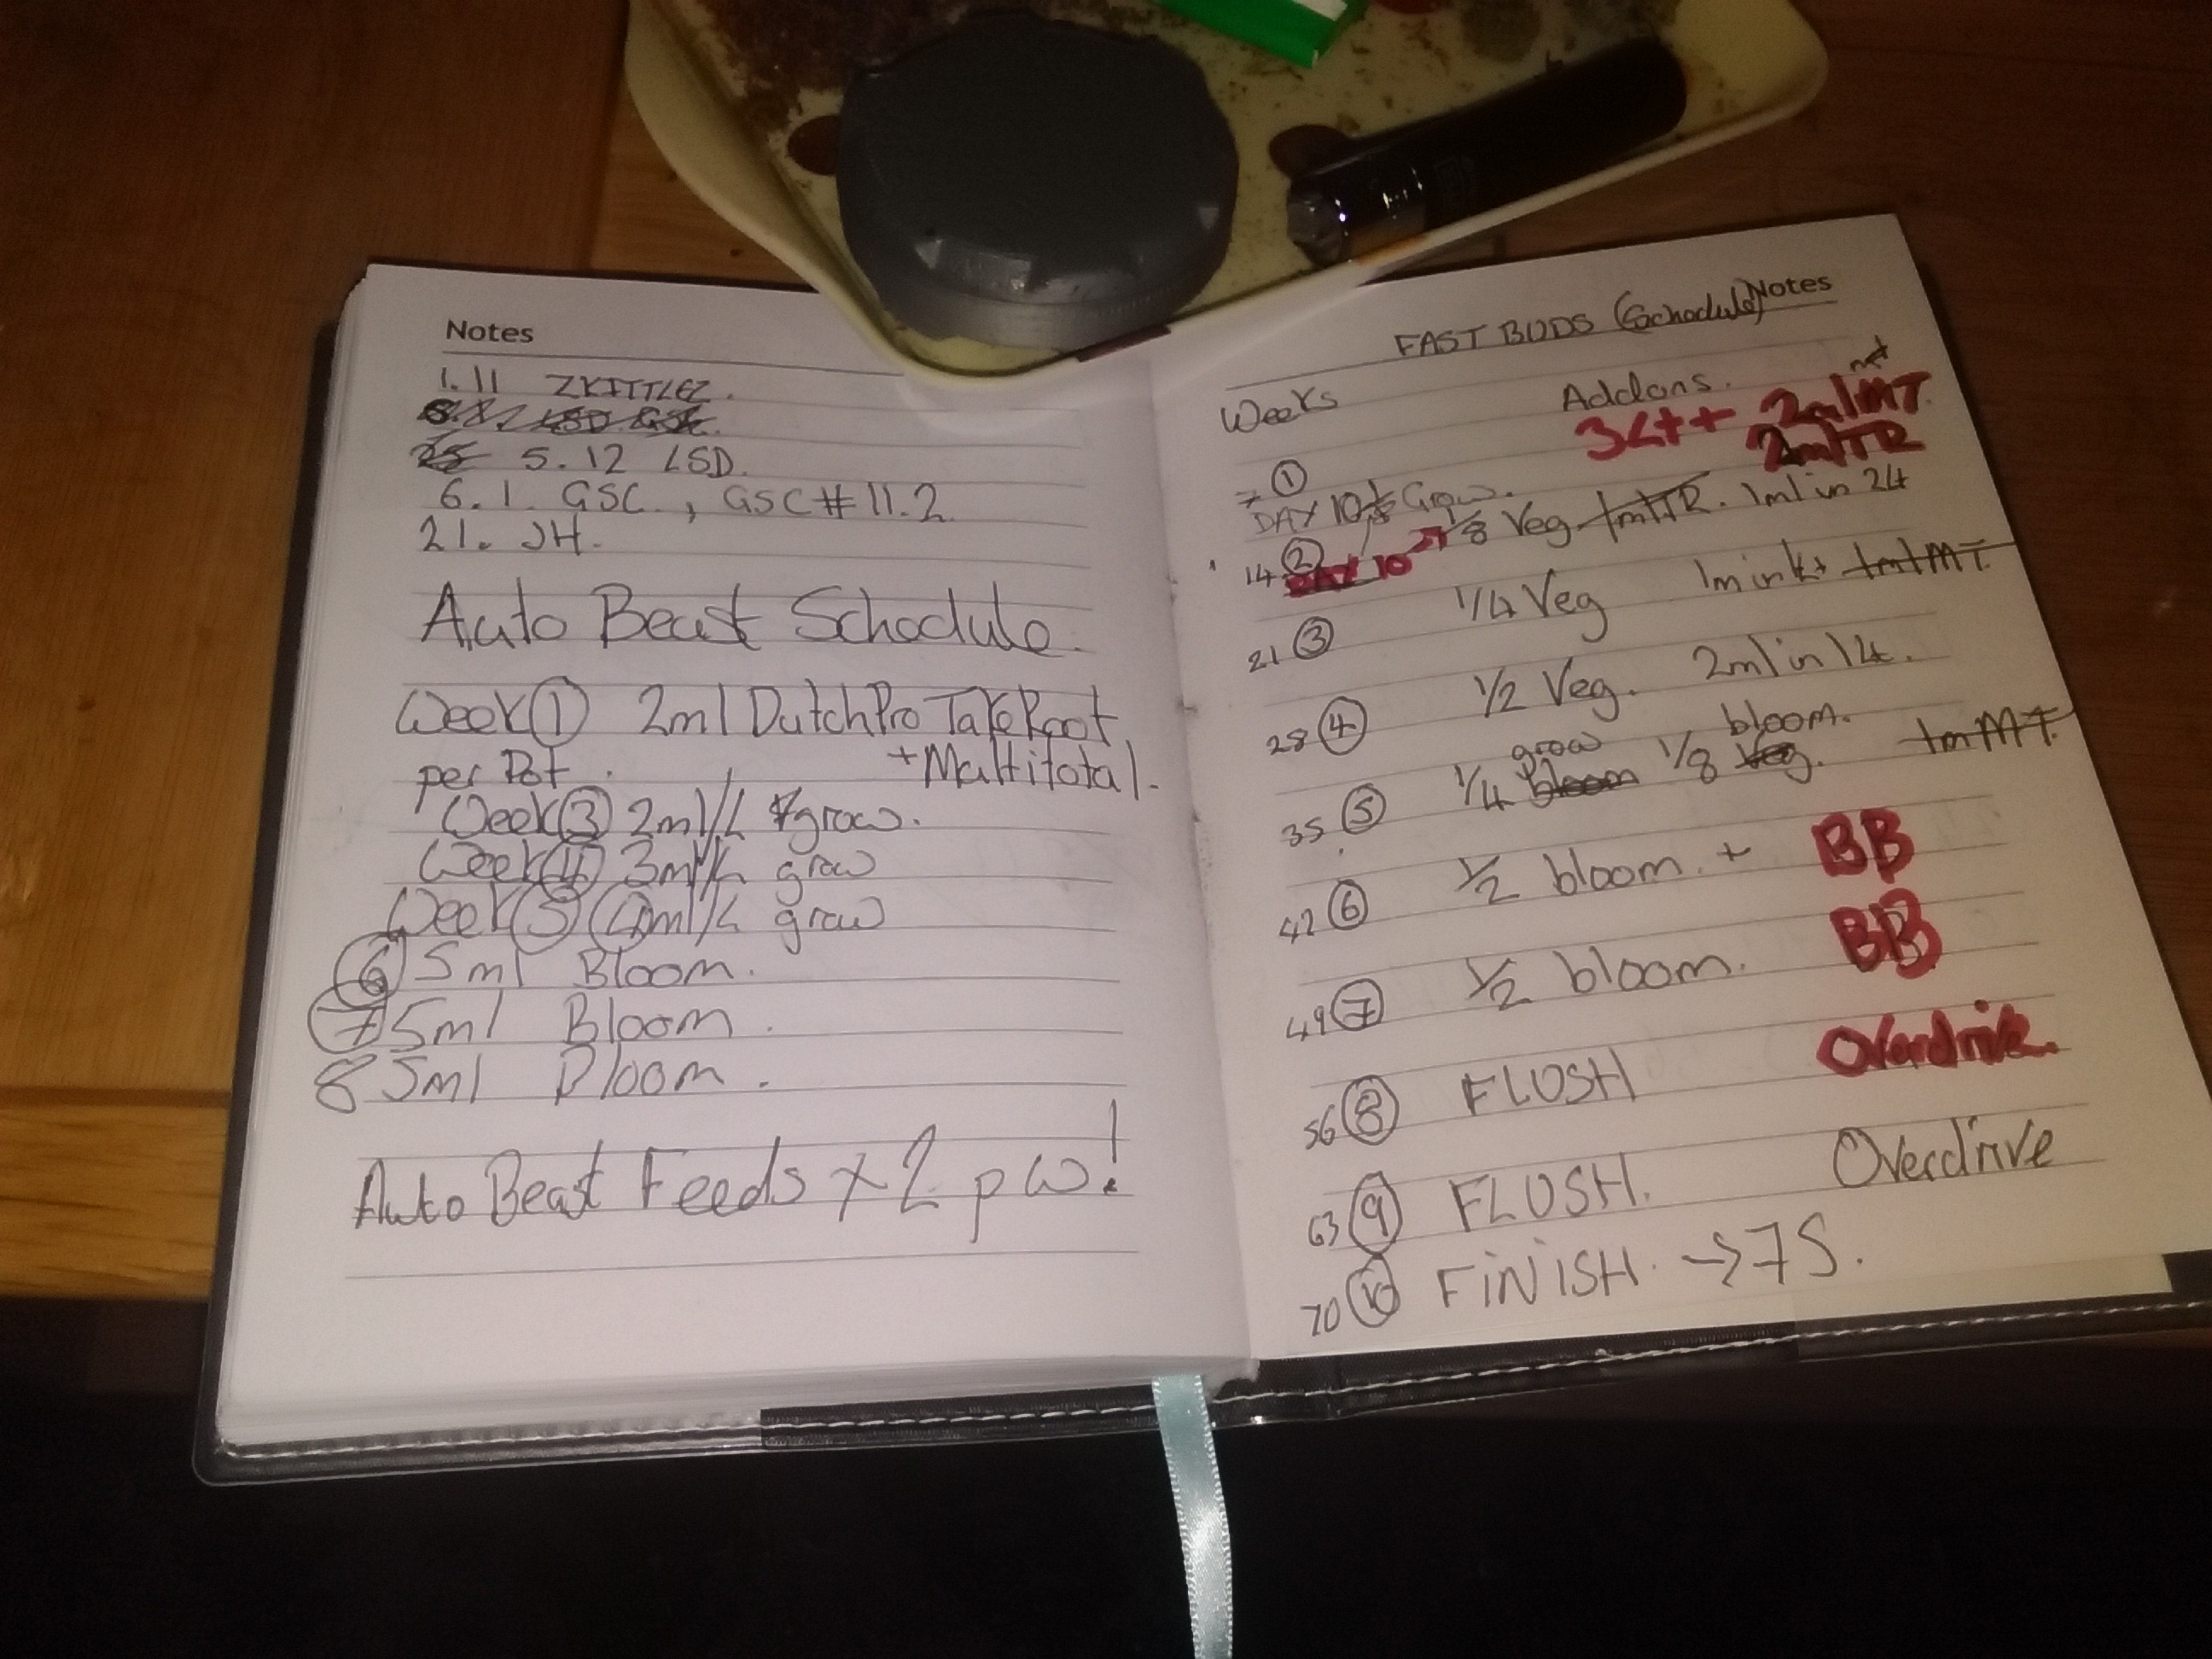 Notes
1.11 ZKITTLEZ.
5.12 LSD.
6.1. GSC, GSC#11.2
21. JH.
Auto Beast Schedule.
Week ① 2ml DutchPro TakeRoot
per Pot. + Multitotal.
Week ③ 2ml/L grow.
Week ④ 3ml/L grow
Week ⑤ 4ml/L grow
⑥ 5ml Bloom.
⑦ 5ml Bloom.
8 5ml Bloom.
Auto Beast Feeds x2 pw!
Notes
FAST BUDS (Schedule)
Weeks Addons.
2ml MT
2ml TR
7 ①
DAY 10 Grow.
14 ② 1/8 Veg 1ml TR. 1ml in 2Lt
DAY 10
21 ③ 1/4 Veg 1ml MT
28 ④ 1/2 Veg. 2ml in 1Lt.
grow bloom.
35 ⑤ 1/4 bloom 1/8 Veg. 1ml MT.
42 ⑥ 1/2 bloom. + BB
49 ⑦ 1/2 bloom. BB
56 ⑧ FLUSH Overdrive.
63 ⑨ FLUSH. Overdrive
70 ⑩ FINISH. → 75.